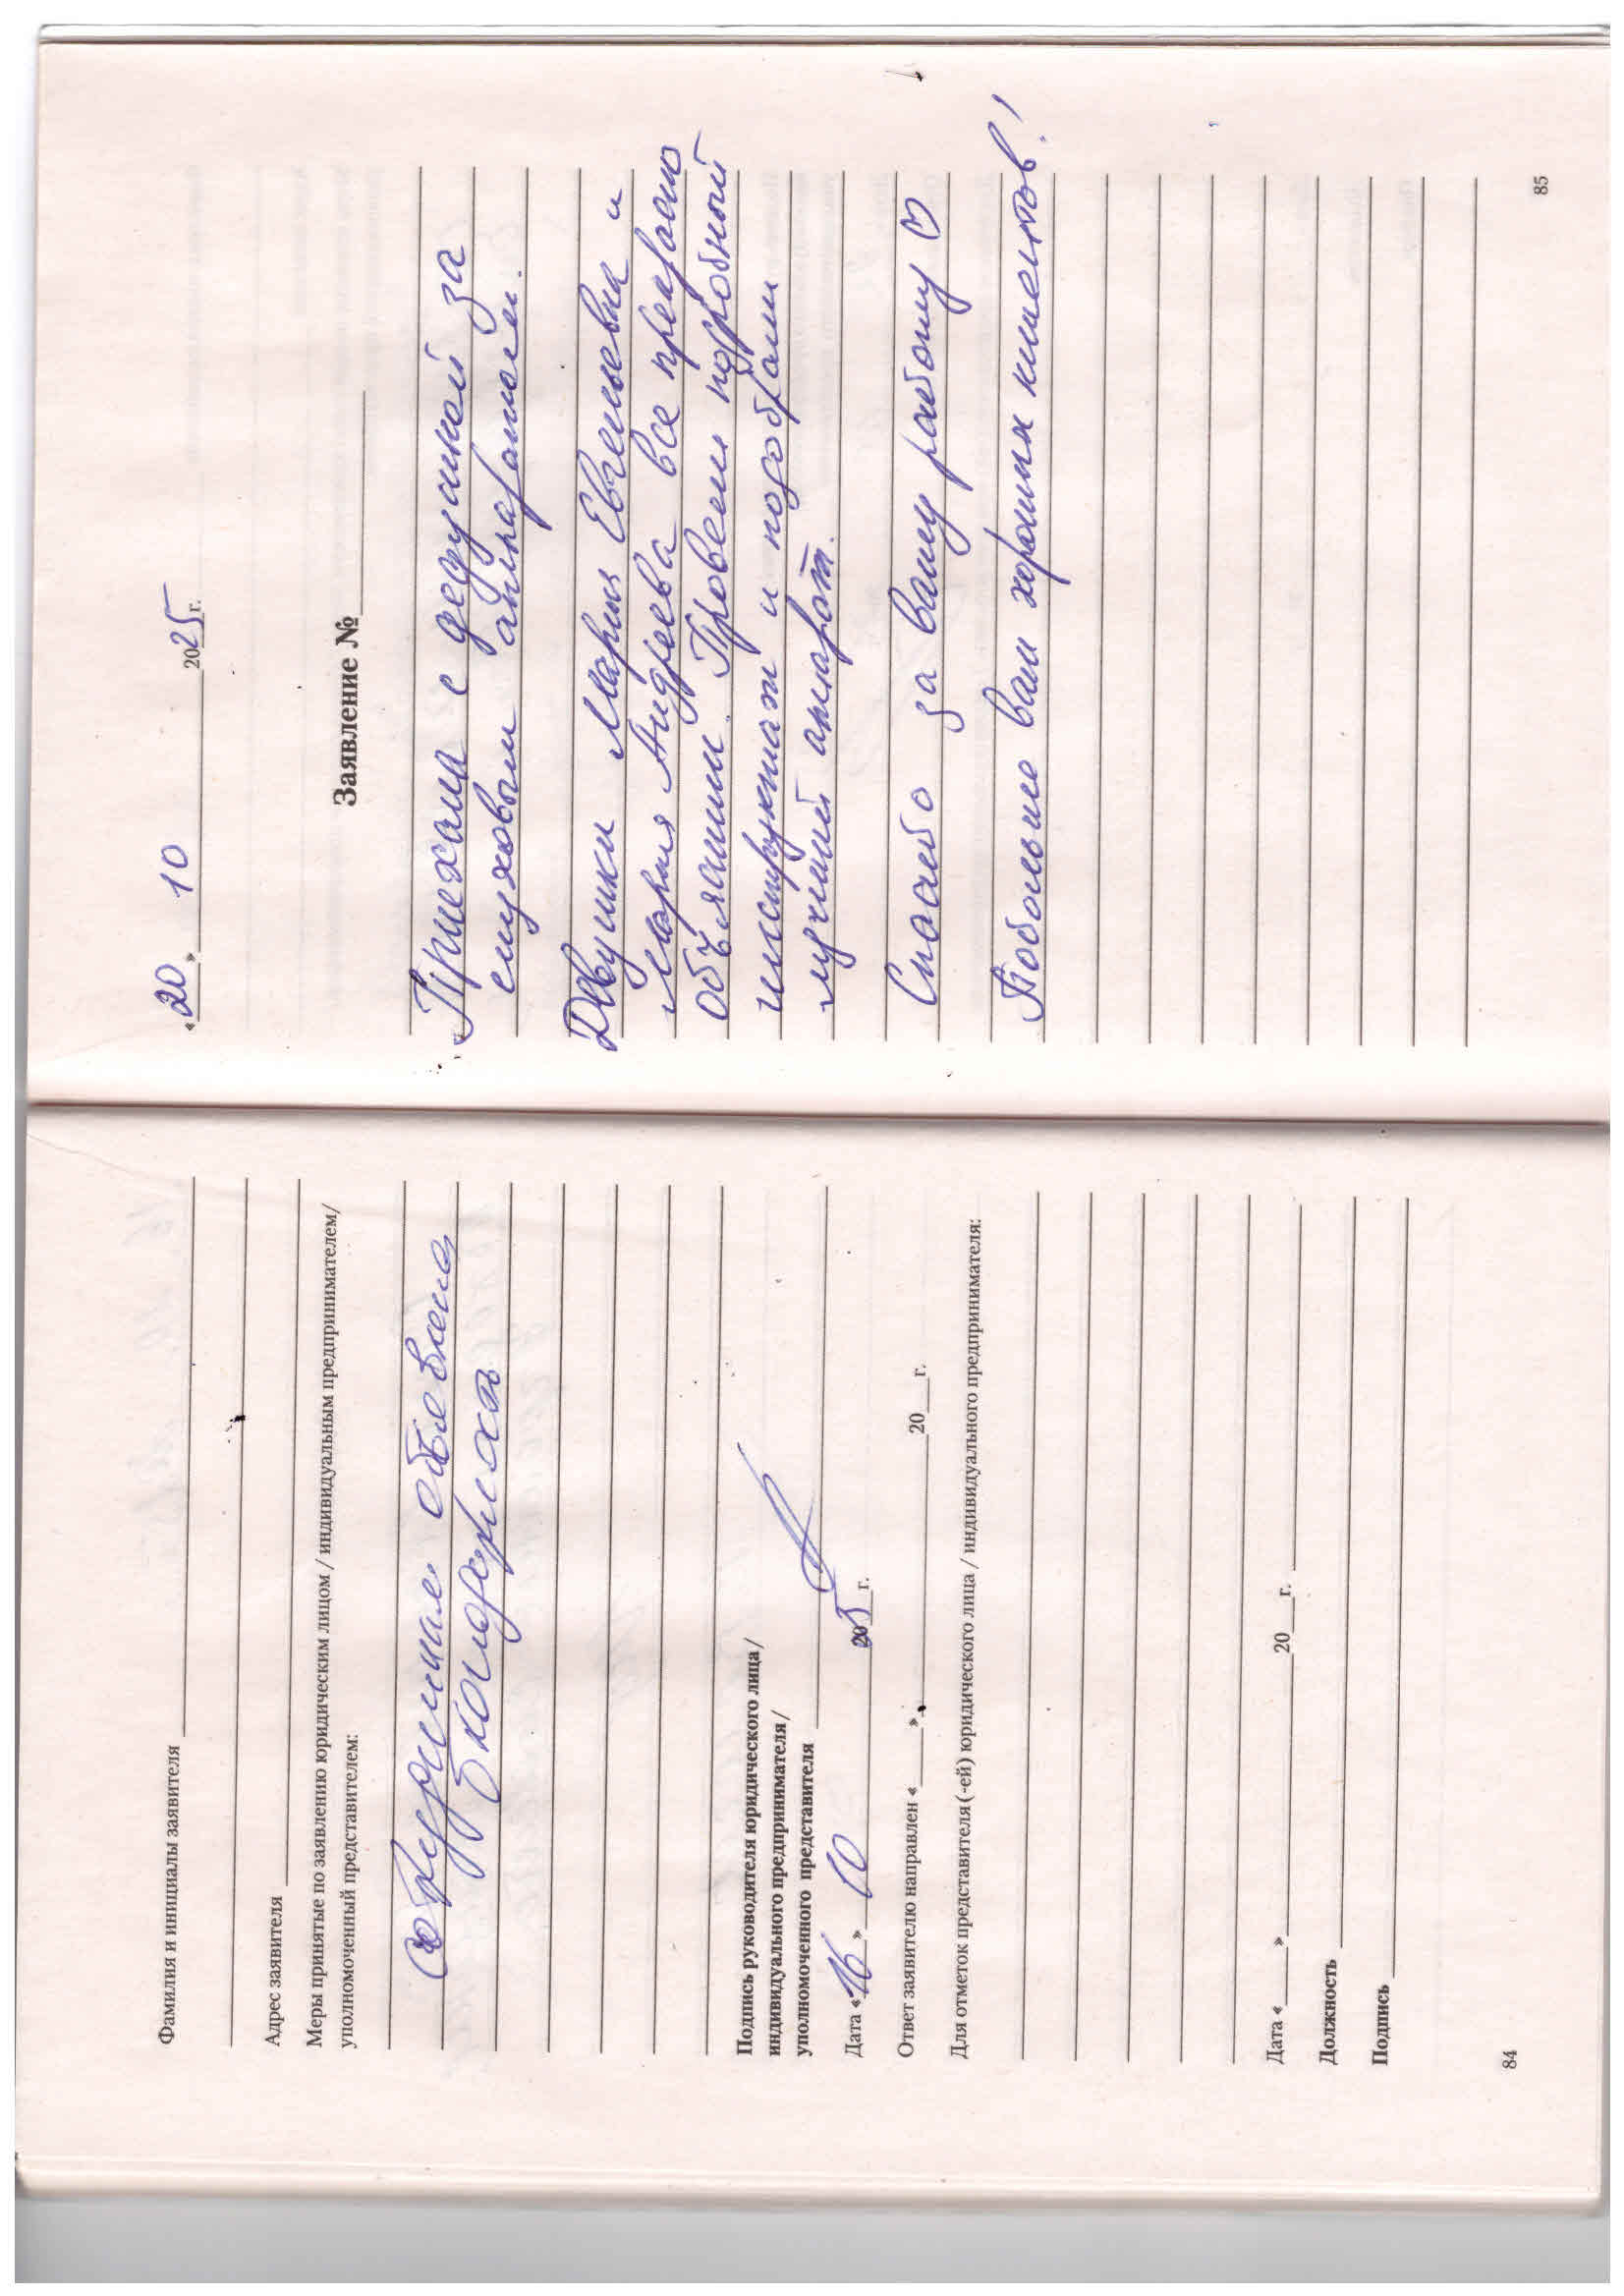 Фамилия и инициалы заявителя
Адрес заявителя
Меры принятые по заявлению юридическим лицом / индивидуальным предпринимателем/
уполномоченный представителем:
сотруднике объявлена
благодарность
Подпись руководителя юридического лица/
индивидуального предпринимателя/
уполномоченного представителя
Дата «16» 10 2025 г.
Ответ заявителю направлен «___» ___ 20__г.
Для отметок представителя(-ей) юридического лица / индивидуального предпринимателя:
Дата «___» ___ 20__г.
Должность
Подпись
84
«20» 10 2025г.
Заявление №
Приехала с дедушкой за
слуховым аппаратом.
Девушки Мария Евгеньевна и
Мария Андреева все прекрасно
объяснили. Провели подробный
инструктаж и подобрали
лучший аппарат.
Спасибо за вашу работу ♡
Побольше вам хороших клиентов!
85